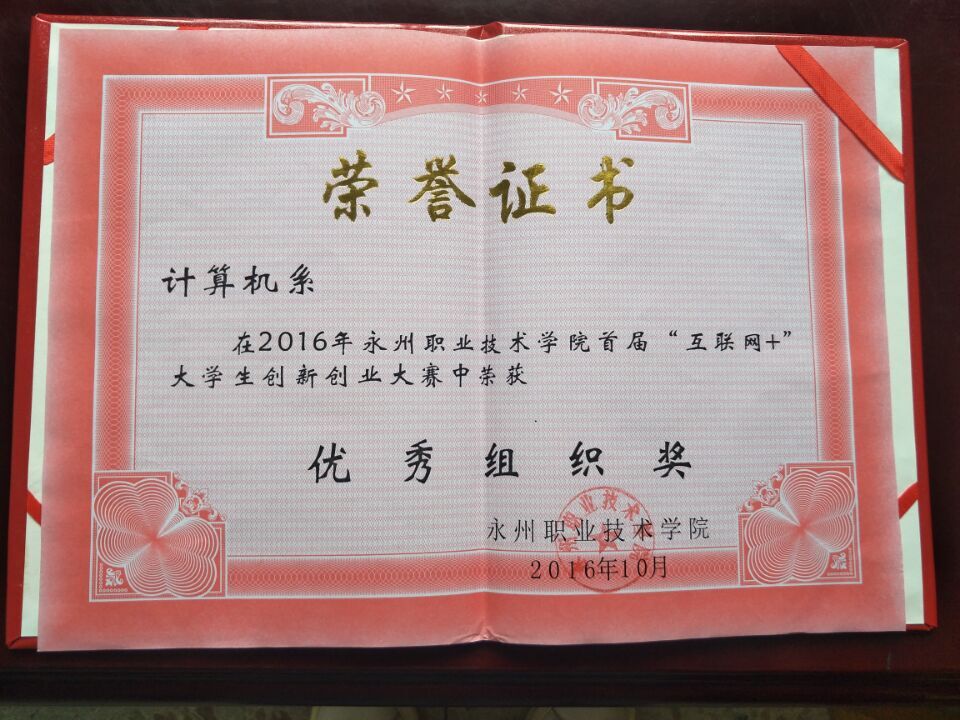 荣誉证书
计算机系
在2016年永州职业技术学院首届“互联网+”
大学生创新创业大赛中荣获
优秀组织奖
永州职业技术学院
2016年10月
永州职业技术学院